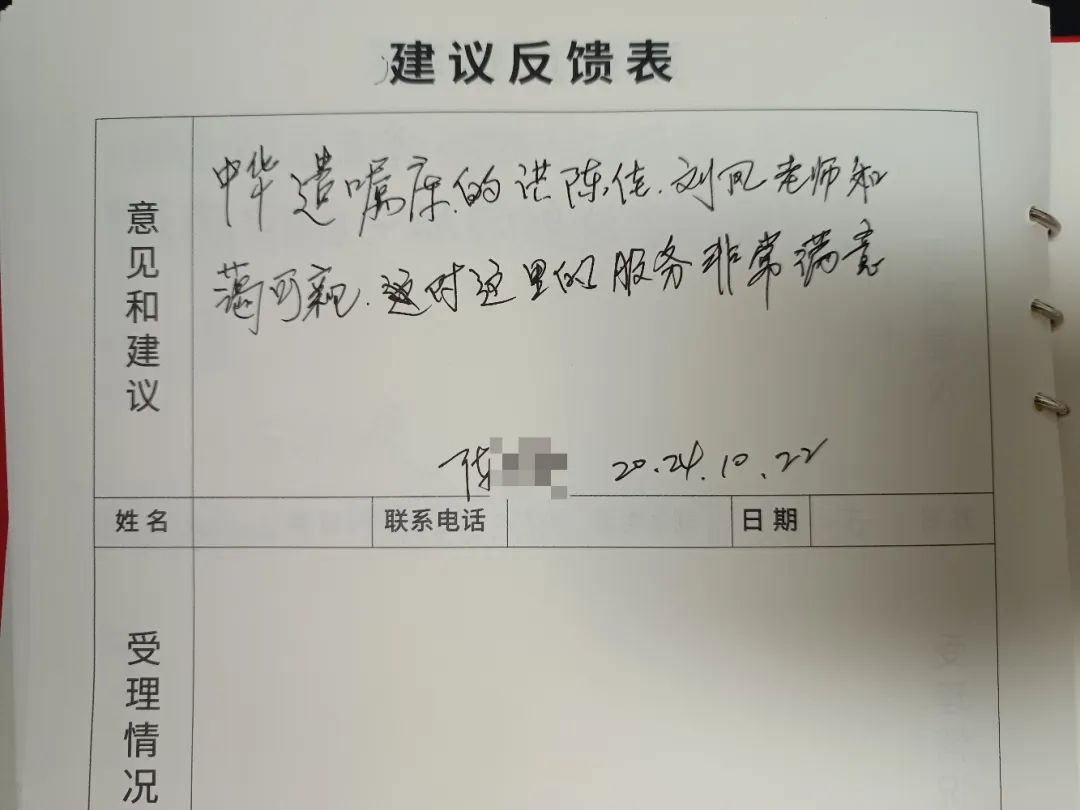 建议反馈表
意见和建议
中华遗嘱库的洪陈佳.刘凤老师和
蔼可亲.这对这里的服务非常满意
陈 2024.10.22
姓名 联系电话 日期
受理情况